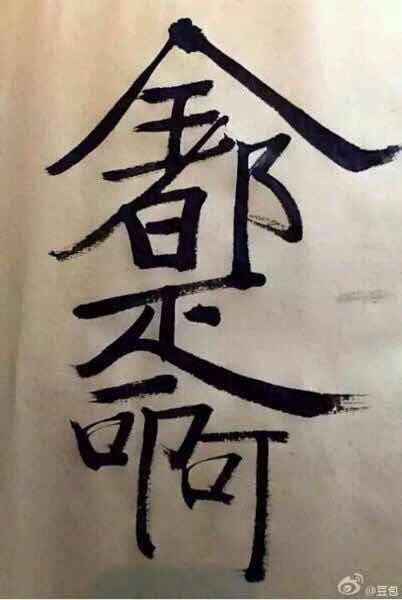 全都是啊
@豆包